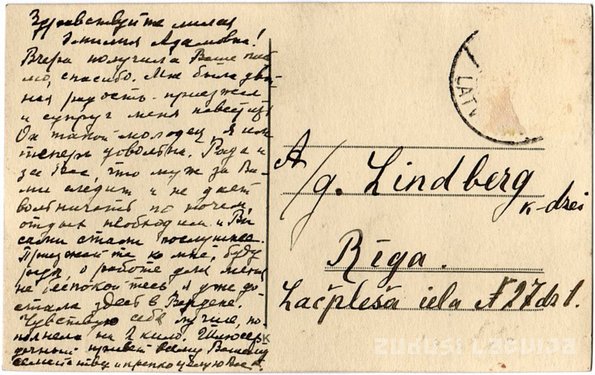 Здравствуйте милая
Эмилия Адамовна!
Вчера получила Ваше пись
мо, спасибо. Мне была двой
ная радость приезжал
и супруг меня навестить
Он такой молодец я им
теперь довольна. Рада и
за Вас, что муж за Ва
ми следит и не дает
по ночам
отдых необходим. и Вы
стали послушнее.
Приезжайте ко мне, буду
рада, о работе для меня
не беспокойтесь, я уже до
стала здесь в
Чувствую себя лучше, по
полнела на 2 кило.
привет всему Вашему
семейству и крепко целую Вас
LATV
A/g. Lindberg
k-dzei
Rīga.
Lačplēša iela № 27 dz 1.
zudusi Latvija